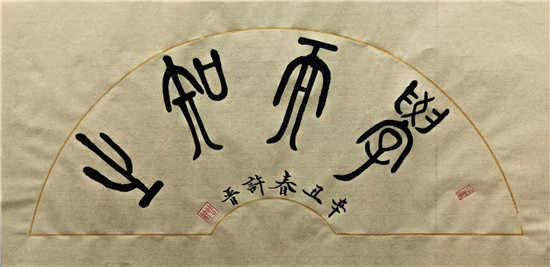 學而知之
辛丑春許晋